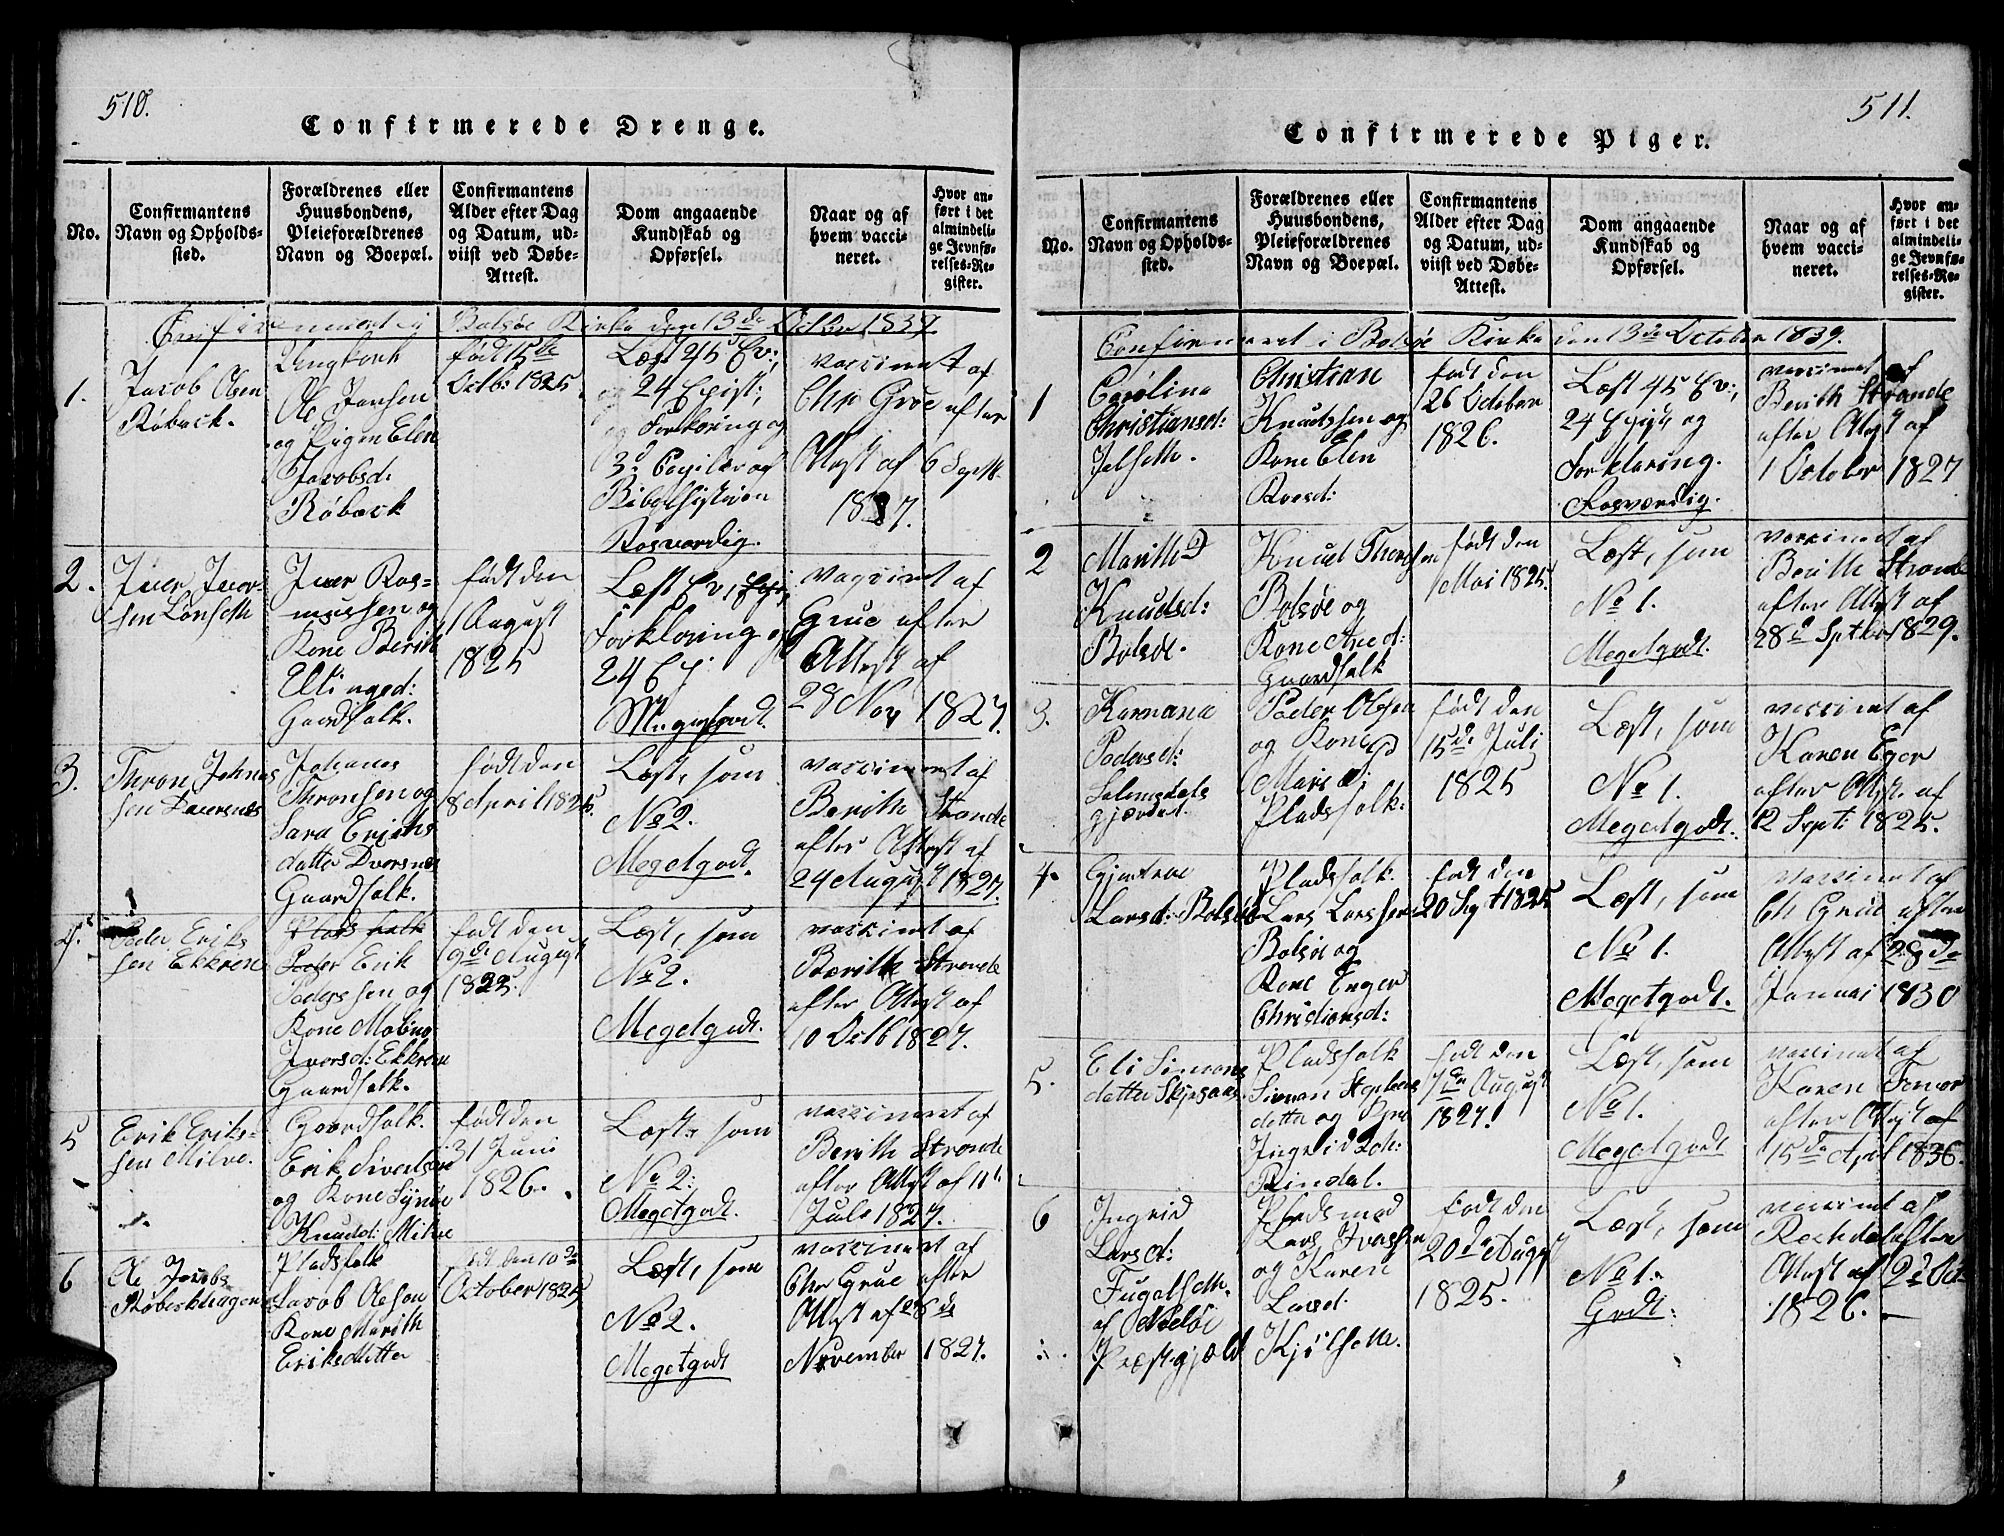 510.
Confirmerede Drenge.
No.
Confirmantens
Navn og Opholds-
sted.
Forældrenes eller
Huusbondens,
Pleieforældrenes
Navn og Boepæl.
Confirmantens
Alder efter Dag
og Datum, ud-
viist ved Døbe-
Attest.
Dom angaaende
Kundskab og
Opførsel.
Naar og af
hvem vacci-
neret.
Hvor an-
ført i det
almindeli-
ge Jevnfø-
relses-Re-
gister.
Bolsøe Kirke den 13de Octbr 1839.
1.
Jacob Olsen
Røbeck.
Ungkarl
Ole Jansen
og Pigen Elen
Jacobsd:
Røbeck
født 15de
Octb: 1825.
Læst 45 Ev:,
og 24 Epist;
og Forkloring og
Bibelhistorien
Rosværdig.
vaccinert af
Chr Grue efter
Attest af 6 Septb.
18 7.
2.
Iver Iver-
sen Lønseth
Iver Ras-
mussen og
Kone Berith
Ellingsd:
Gaardfolk.
født den
1 August
1825
Læst Ev,
Forkloring og
24 Ep
Megetgodt.
vaccinert af
Grue efter
Attest af
28 Nov 1827.
3.
Thron Johnas
sen Dversnes
Johanes
Thronsen og
Sara Erichs
datter Dversnes
Gaardfolk.
født den
8 April 1825.
Læst, som
No 2.
Megetgodt.
vaccinert af
Berith Strande
efter Attest af
24 August 1827.
4.
Peder Erik
sen Ekkren
Plads folk
Peder Erik
Pedersen og
Kone Malena
Iversd: Ekkren
Gaardfolk.
født den
9de August
1825.
Læst, som
No 2.
Megetgodt.
vaccinert af
Berith Strande
efter Attest af
10 Octb 1827.
5
Erik Erik-
sen Milve.
Gaardfolk.
Erik Sivertsen
og Kone Synøe
Knudsd: Milve
født den
21 Juni
1826.
Læst, som
No 2:
Megetgodt.
vaccineret af
Berith Strande
efter Attest af 11te
Juli 1827.
6
Ole Jacobs
Røbekhagen
Pladsfolk
Jacob Olesen
Kone Marith
Eriksdatter
født den 10de
October 1825
Læst, som
No 2.
Megetgodt
vaccineret af
Chr Grue efter
Attest af 28de
November 1827.
511.
Confirmerede Piger.
No.
Confirmantens
Navn og Opholds-
sted.
Forældrenes eller
Huusbondens,
Pleieforældrenes
Navn og Boepæl.
Confirmantens
Alder efter Dag
og Datum, ud-
viist ved Døbe-
Attest.
Dom angaaende
Kundskab og
Opførsel.
Naar og af
hvem vacci-
neret.
Hvor an-
ført i det
almindeli-
ge Jevnfø-
relses-Re-
gister.
Confirmeret i Bolsøe Kirke den 13de October 1839.
1
Carolina
Christiansd:
Jelseth.
Christian
Knudssen og
Kone Elen
født den
26 October
1826.
Læst 45 Ev;,
24 Epist og
Forklaring.
Rosværdig.
vaccinert af
Berith Strande
efter Attest af
1 October 1827
2
Marith
Knudsd:
Bolsøe.
Knud
Bolsøe og
Kone Aned:
Gaardfolk
født den
1 Mai 1825.
Læst, som
No 1.
Megetgodt.
vaccinert af
Berith Strande
efter Attest af
28d Sptbr 1829.
3.
Karnana
Pedersd:
Peder Olsen
og Kone
Pladsfolk.
født den
15de Juli
1825
Læst, som
No 1.
Megetgodt.
vaccinert af
Karen Eger
efter Attest af
12 Sept: 1825.
4.
Gjertrue
Larsd: Bolsøe
Pladsfolk
Lars Larssen
Bolsøe og
Kone Enger
Christiansd:
født den
20 Sept 1825
Læst, som
No 1.
Megetgodt.
vaccinert af
Ch Grue efter
Attest af 28de
Januai 1830
5.
Eli Simons
datter
Pladsfolk
Simon
datter og
Rindal.
født den
7de August
1827.
Læst, som
No 1.
Megetgodt
vaccinat af
Karen
efter Attest af
15de April 1836.
6
Ingrid
Larsd:
Fugelseth.
af Nesøe
Præstegjæld
Pladsmad
Lars
og Karen
Larsd.
Kjølseth.
født den
20de August
1825.
Læst, som
No 1.
Godt:
vaccinert af
Rechdal efter
Attest af 2d Oct
1826.